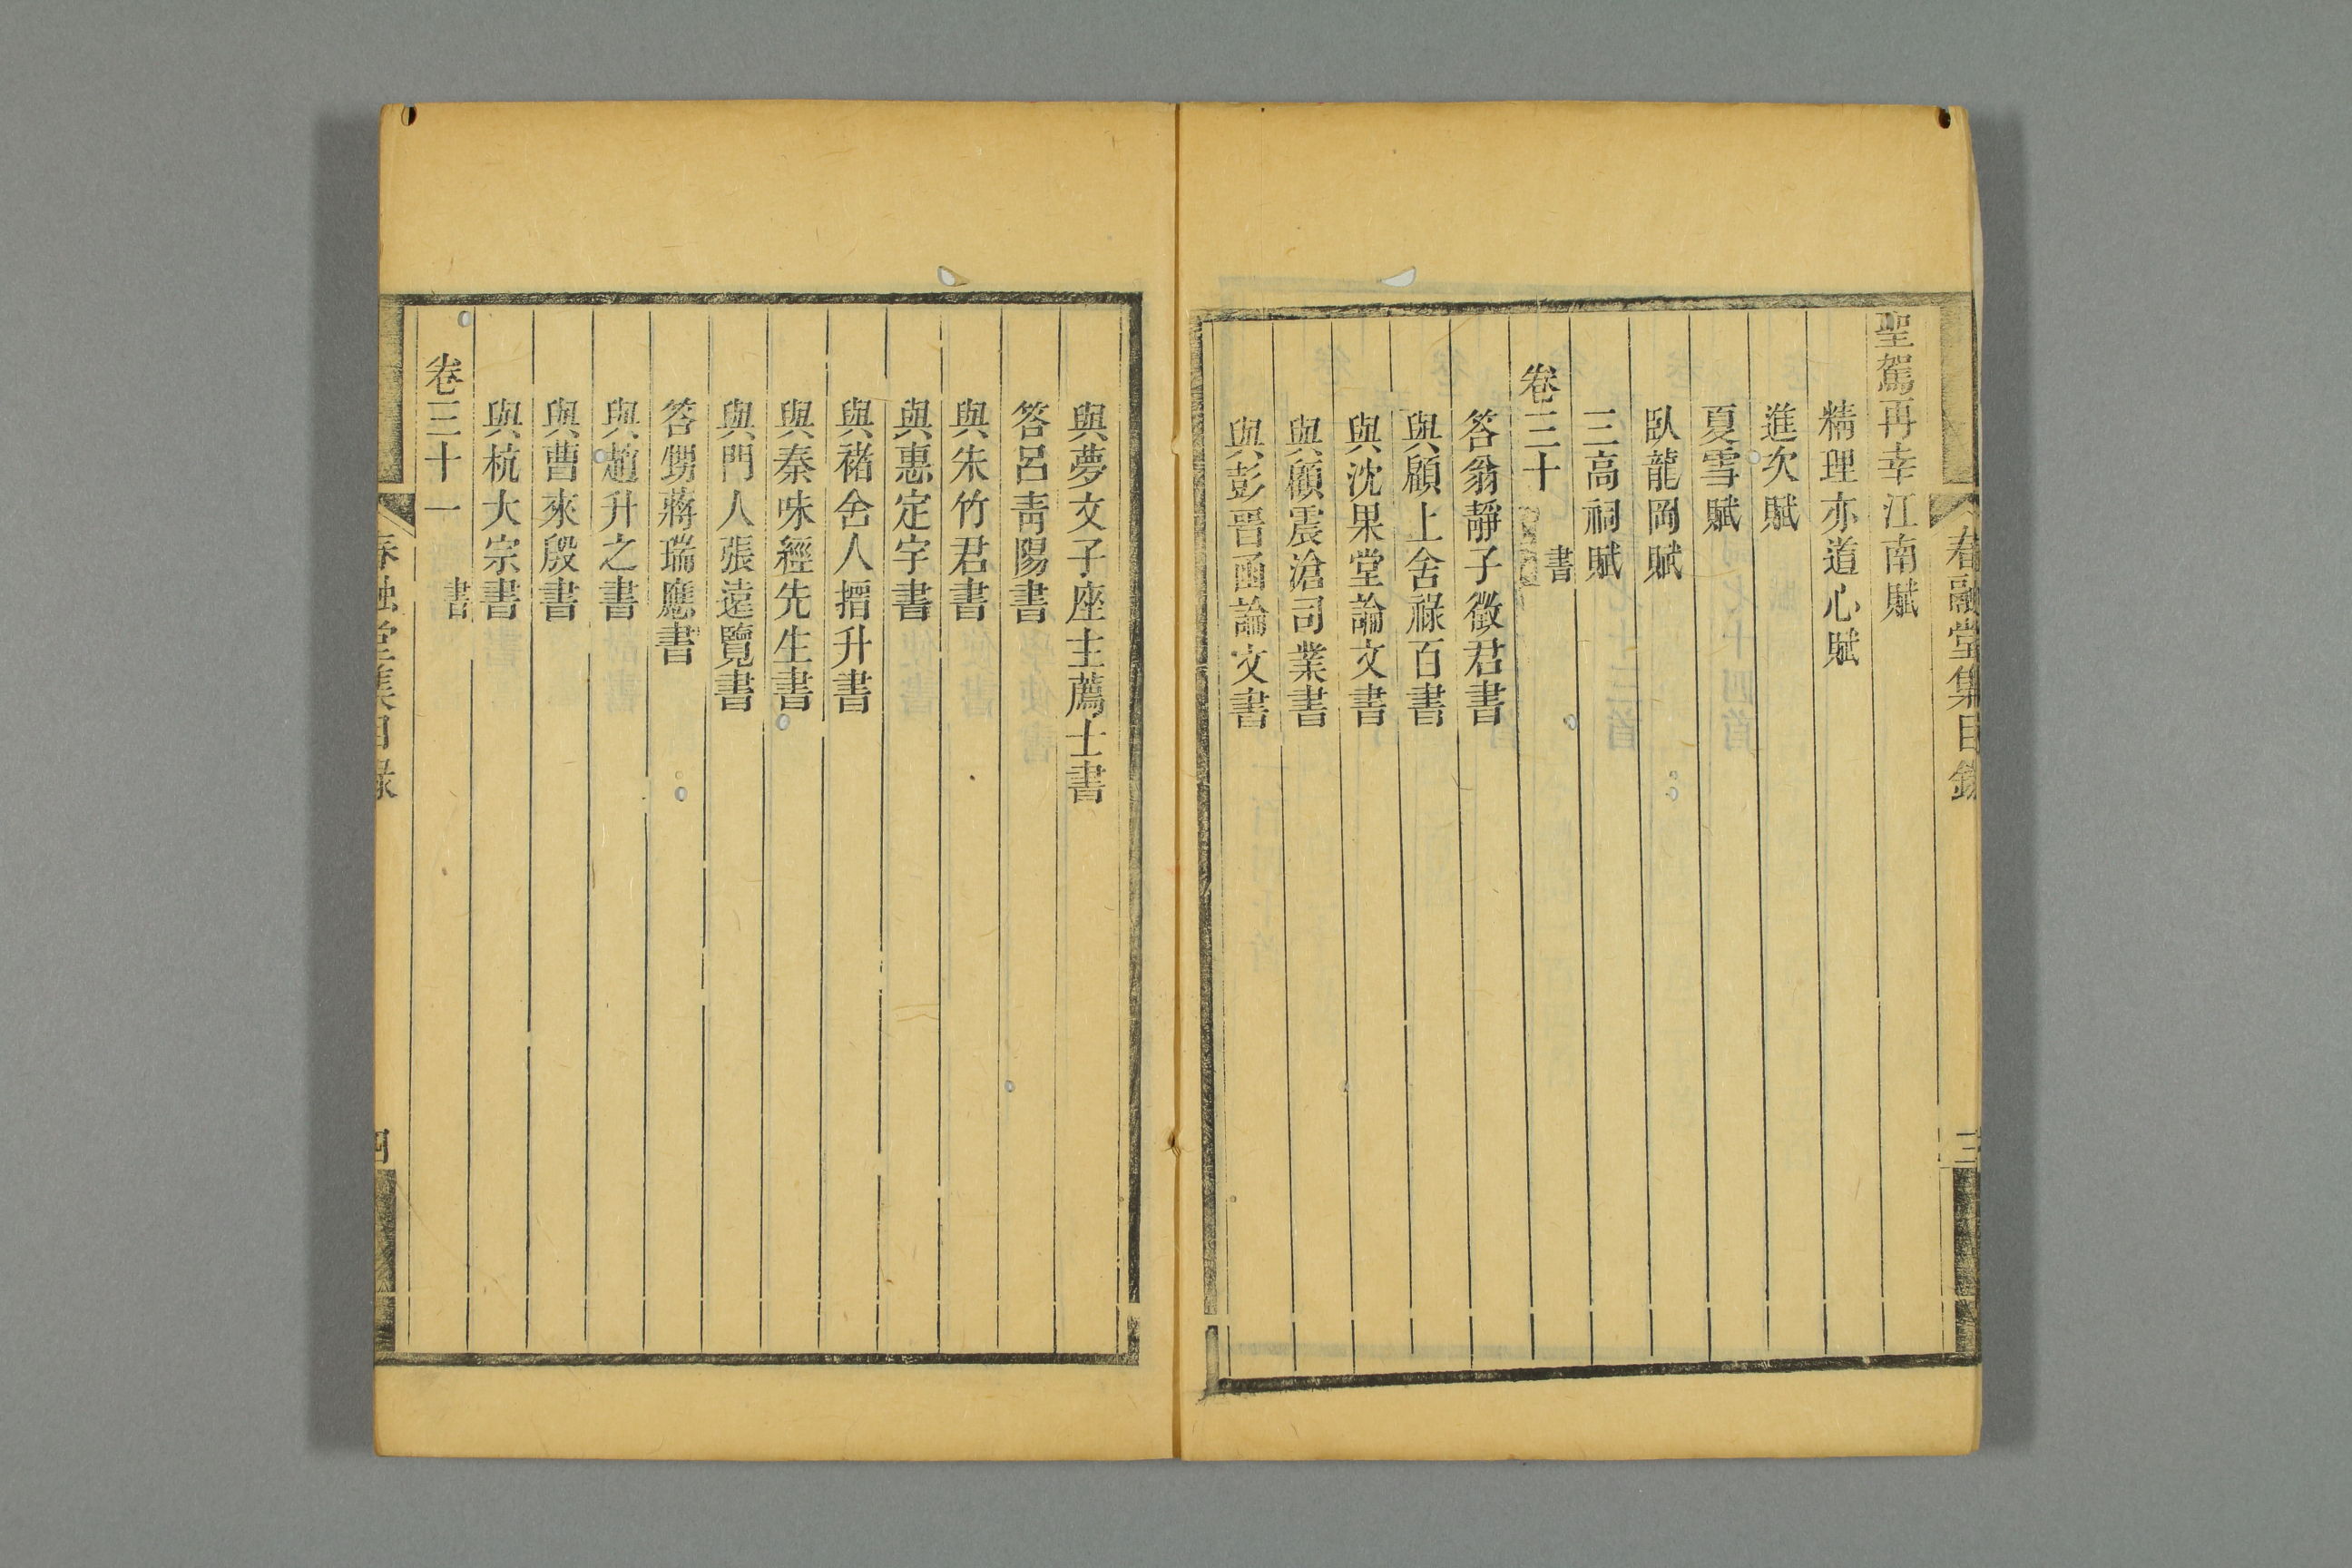 春融堂集目錄
三
聖駕再幸江南賦
精理亦道心賦
進次賦
夏雪賦
臥龍岡賦
三高祠賦
卷三十 書
答翁靜子徵君書
與顧上舍祿百書
與沈果堂論文書
與顧震滄司業書
與彭晉函論文書
與夢文子座主薦士書
答呂靑陽書
與朱竹君書
與惠定宇書
與褚舍人搢升書
與秦味經先生書
與門人張遠覽書
答甥蔣瑞應書
與趙升之書
與曹來殷書
與杭大宗書
卷三十一 書
春融堂集目錄
四